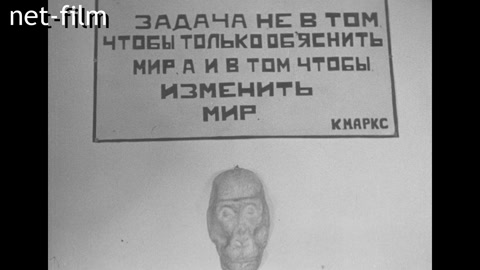 net-film
ЗАДАЧА НЕ В ТОМ
ЧТОБЫ ТОЛЬКО ОБ'ЯСНИТЬ
МИР. А И В ТОМ ЧТОБЫ
ИЗМЕНИТЬ
МИР
К МАРКС